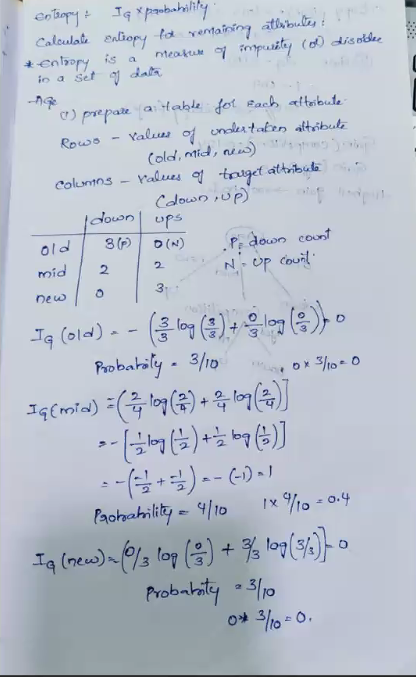 entropy : IG x probability
Calculate entropy for remaining attributes:
* entropy is a measure of impurity (or) disorder
in a set of data
-Age
(1) prepare a table for each attribute
Rows - values of undertaken attribute
(old, mid, new)
columns - values of target attribute
(down, up)
down ups
old 3(P) 0(N)
mid 2 2
new 0 3
P = down count
N = up count
IG(old) = - (3/3 log(3/3) + 0/3 log(0/3)) = 0
Probability = 3/10 0 x 3/10 = 0
IG(mid) = (2/4 log(2/4) + 2/4 log(2/4)]
= -[1/2 log(1/2) + 1/2 log(1/2)]
= -(-1/2 + -1/2) = -(-1) = 1
Probability = 4/10 1 x 4/10 = 0.4
IG(new) = (0/3 log(0/3) + 3/3 log(3/3)] = 0
Probability = 3/10
0* 3/10 = 0.